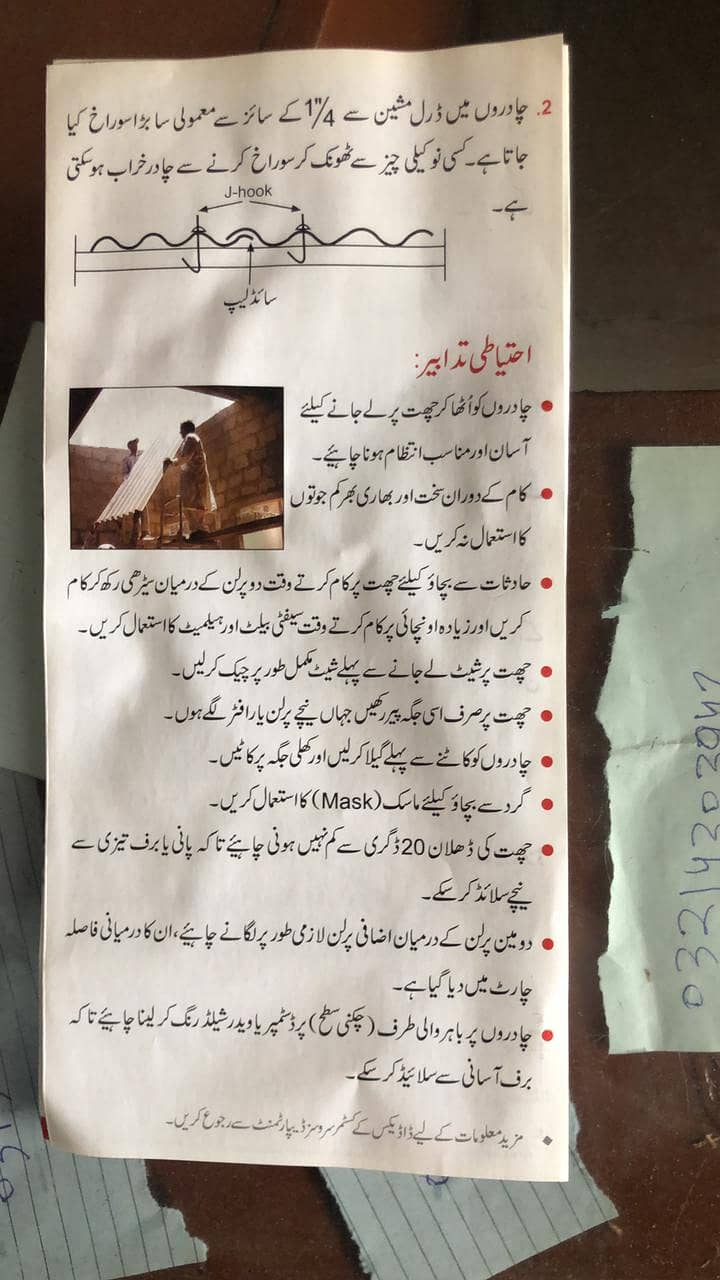 2. چادروں میں ڈرل مشین سے 1/4" کے سائز سے معمولی سا بڑا سوراخ کیا
جاتا ہے۔ کسی نوکیلی چیز سے ٹھونک کر سوراخ کرنے سے چادر خراب ہوسکتی
ہے۔
J-hook
سائڈ لیپ
احتیاطی تدابیر:
• چادروں کو اُٹھا کر چھت پر لے جانے کیلئے
آسان اور مناسب انتظام ہونا چاہیئے۔
• کام کے دوران سخت اور بھاری بھرکم جوتوں
کا استعمال نہ کریں۔
• حادثات سے بچاؤ کیلئے چھت پر کام کرتے وقت دو پرلن کے درمیان سیڑھی رکھ کر کام
کریں اور زیادہ اونچائی پر کام کرتے وقت سیفٹی بیلٹ اور ہیلمیٹ کا استعمال کریں۔
• چھت پر شیٹ لے جانے سے پہلے شیٹ مکمل طور پر چیک کرلیں۔
• چھت پر صرف اسی جگہ پیر رکھیں جہاں نیچے پرلن یا رافٹر لگے ہوں۔
• چادروں کو کاٹنے سے پہلے گیلا کرلیں اور کھلی جگہ پر کاٹیں۔
• گرد سے بچاؤ کیلئے ماسک (Mask) کا استعمال کریں۔
• چھت کی ڈھلان 20 ڈگری سے کم نہیں ہونی چاہیئے تاکہ پانی یا برف تیزی سے
نیچے سلائڈ کرسکے۔
• دو مین پرلن کے درمیان اضافی پرلن لازمی طور پر لگانے چاہیئے، ان کا درمیانی فاصلہ
چارٹ میں دیا گیا ہے۔
• چادروں پر باہر والی طرف (چکنی سطح) پر ڈسٹمپر یا ویدر شیلڈ رنگ کرلینا چاہیئے تاکہ
برف آسانی سے سلائیڈ کرسکے۔
◆ مزید معلومات کے لیے ڈاڈیکس کے کسٹمر سروسز ڈیپارٹمنٹ سے رجوع کریں۔